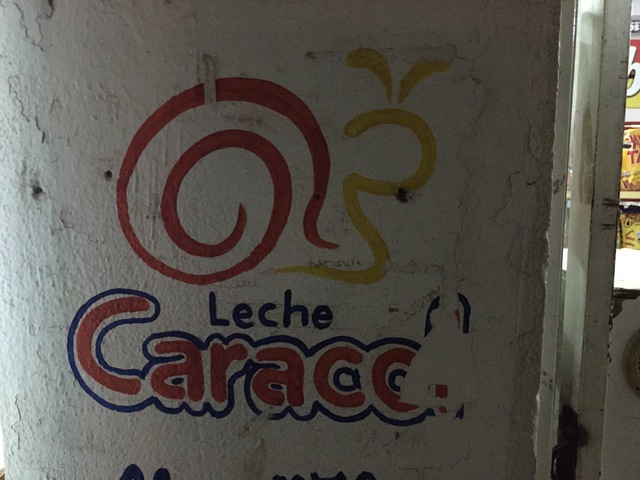 Leche
Caracol